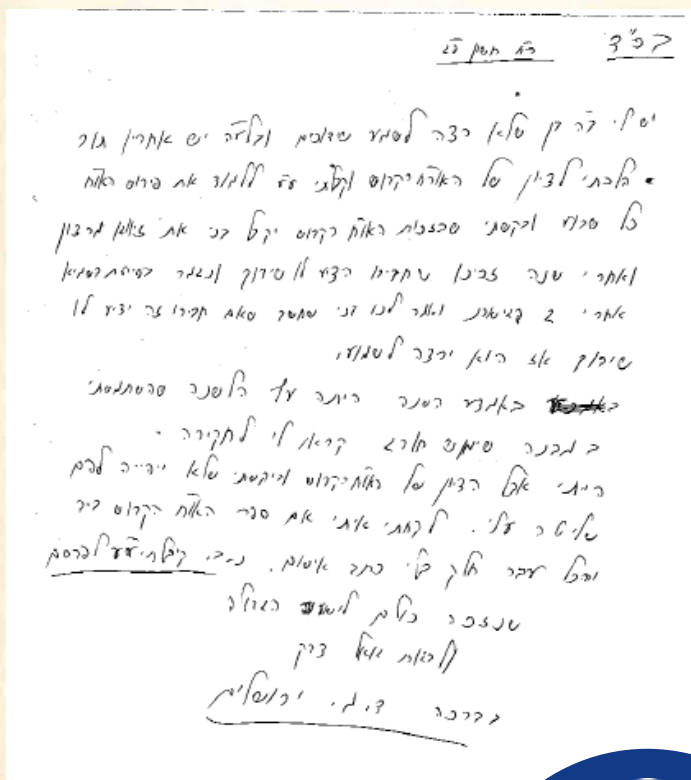 בס"ד ר"ח חשון
יש לי ב"ה בן שלא רצה לשמוע שדוכים ובלע"ה יש אחריו תור
הלכתי לציון של האוה"ח הקדוש וקבלתי ע"ע ללמוד את פירוש האוה"ח
כל שבוע ובקשתי שבזכות האוה"ח הקדוש יקבל בני את זיווגו מרצון
ואחרי שנה זכינו שחבירו הציע לו שידוך ונגמר בסיעתא דשמיא
אחרי 2 פגישות ואמר לנו בני שחשב שאם חבירו זה יציע לו
שידוך אז הוא ירצה לשמוע.
באמצע השנה היתה על הלשנה שהשתמשתי
במבנה שימוש חורג קראו לי לחקירה.
הייתי אצל הציון של האוה"ח הקדוש וביקשתי שלא יהיה להם
שליטה עלי. לקחתי איתי את ספר האוה"ח הקדוש ביד
והכל עבר חלק בלי כתב אישום. קיבלתי ע"ע לפרסם
שנזכה כולם הגאולה
לראות גואל צדק
בברכה ד.ג. ירושלים